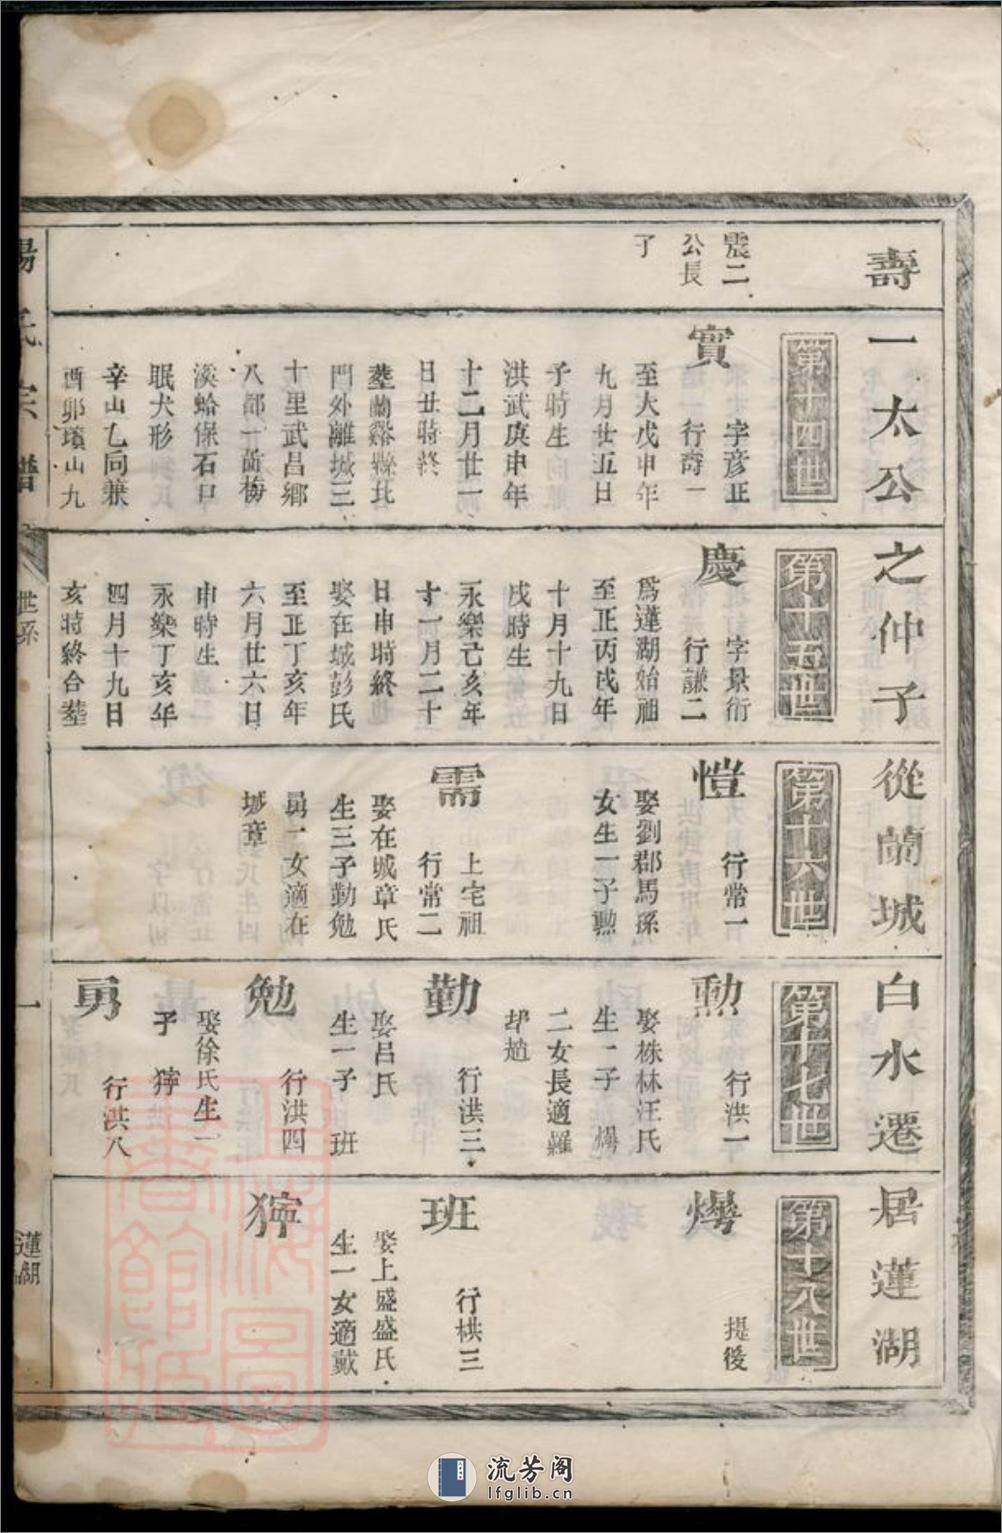 壽一太公之仲子從蘭城白水遷居蓮湖
震二
公長
了
第十四世
實
字彦正
行奇一
至大戊申年
九月廿五日
子時生
洪武庚申年
十二月廿一
日丑時終
塟蘭谿縣北
門外離城三
十里武昌鄉
八都一啚梅
溪蛤保石口
眠犬形
辛山乙向兼
酉卯墳山九
第十五世
慶
字景衍
行謙二
爲蓮湖始祖
至正丙戌年
十月十九日
戌時生
永樂己亥年
十一月二十
日申時終
娶在城彭氏
至正丁亥年
六月廿六日
申時生
永樂丁亥年
四月十九日
亥時終合塟
第十六世
愷
行常一
娶劉郡馬孫
女生一子勲
需
上宅祖
行常二
娶在城章氏
生三子勤勉
勇一女適在
城章
第十七世
勲
行洪一
娶株林汪氏
生一子 㷸
二女長適羅
郎趙
勤
行洪三
娶呂氏
生一子 班
勉
行洪四
娶徐氏生一
子 㹰
勇
行洪八
第十八世
提後
班
行栱三
娶上盛盛氏
生一女適戴
楊氏宗譜
世系
一
蓮湖
上海圖書館藏
流芳阁
lfglib.cn